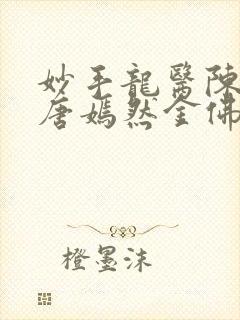 妙手龍醫陳
唐嫣然全佛
橙墨沫